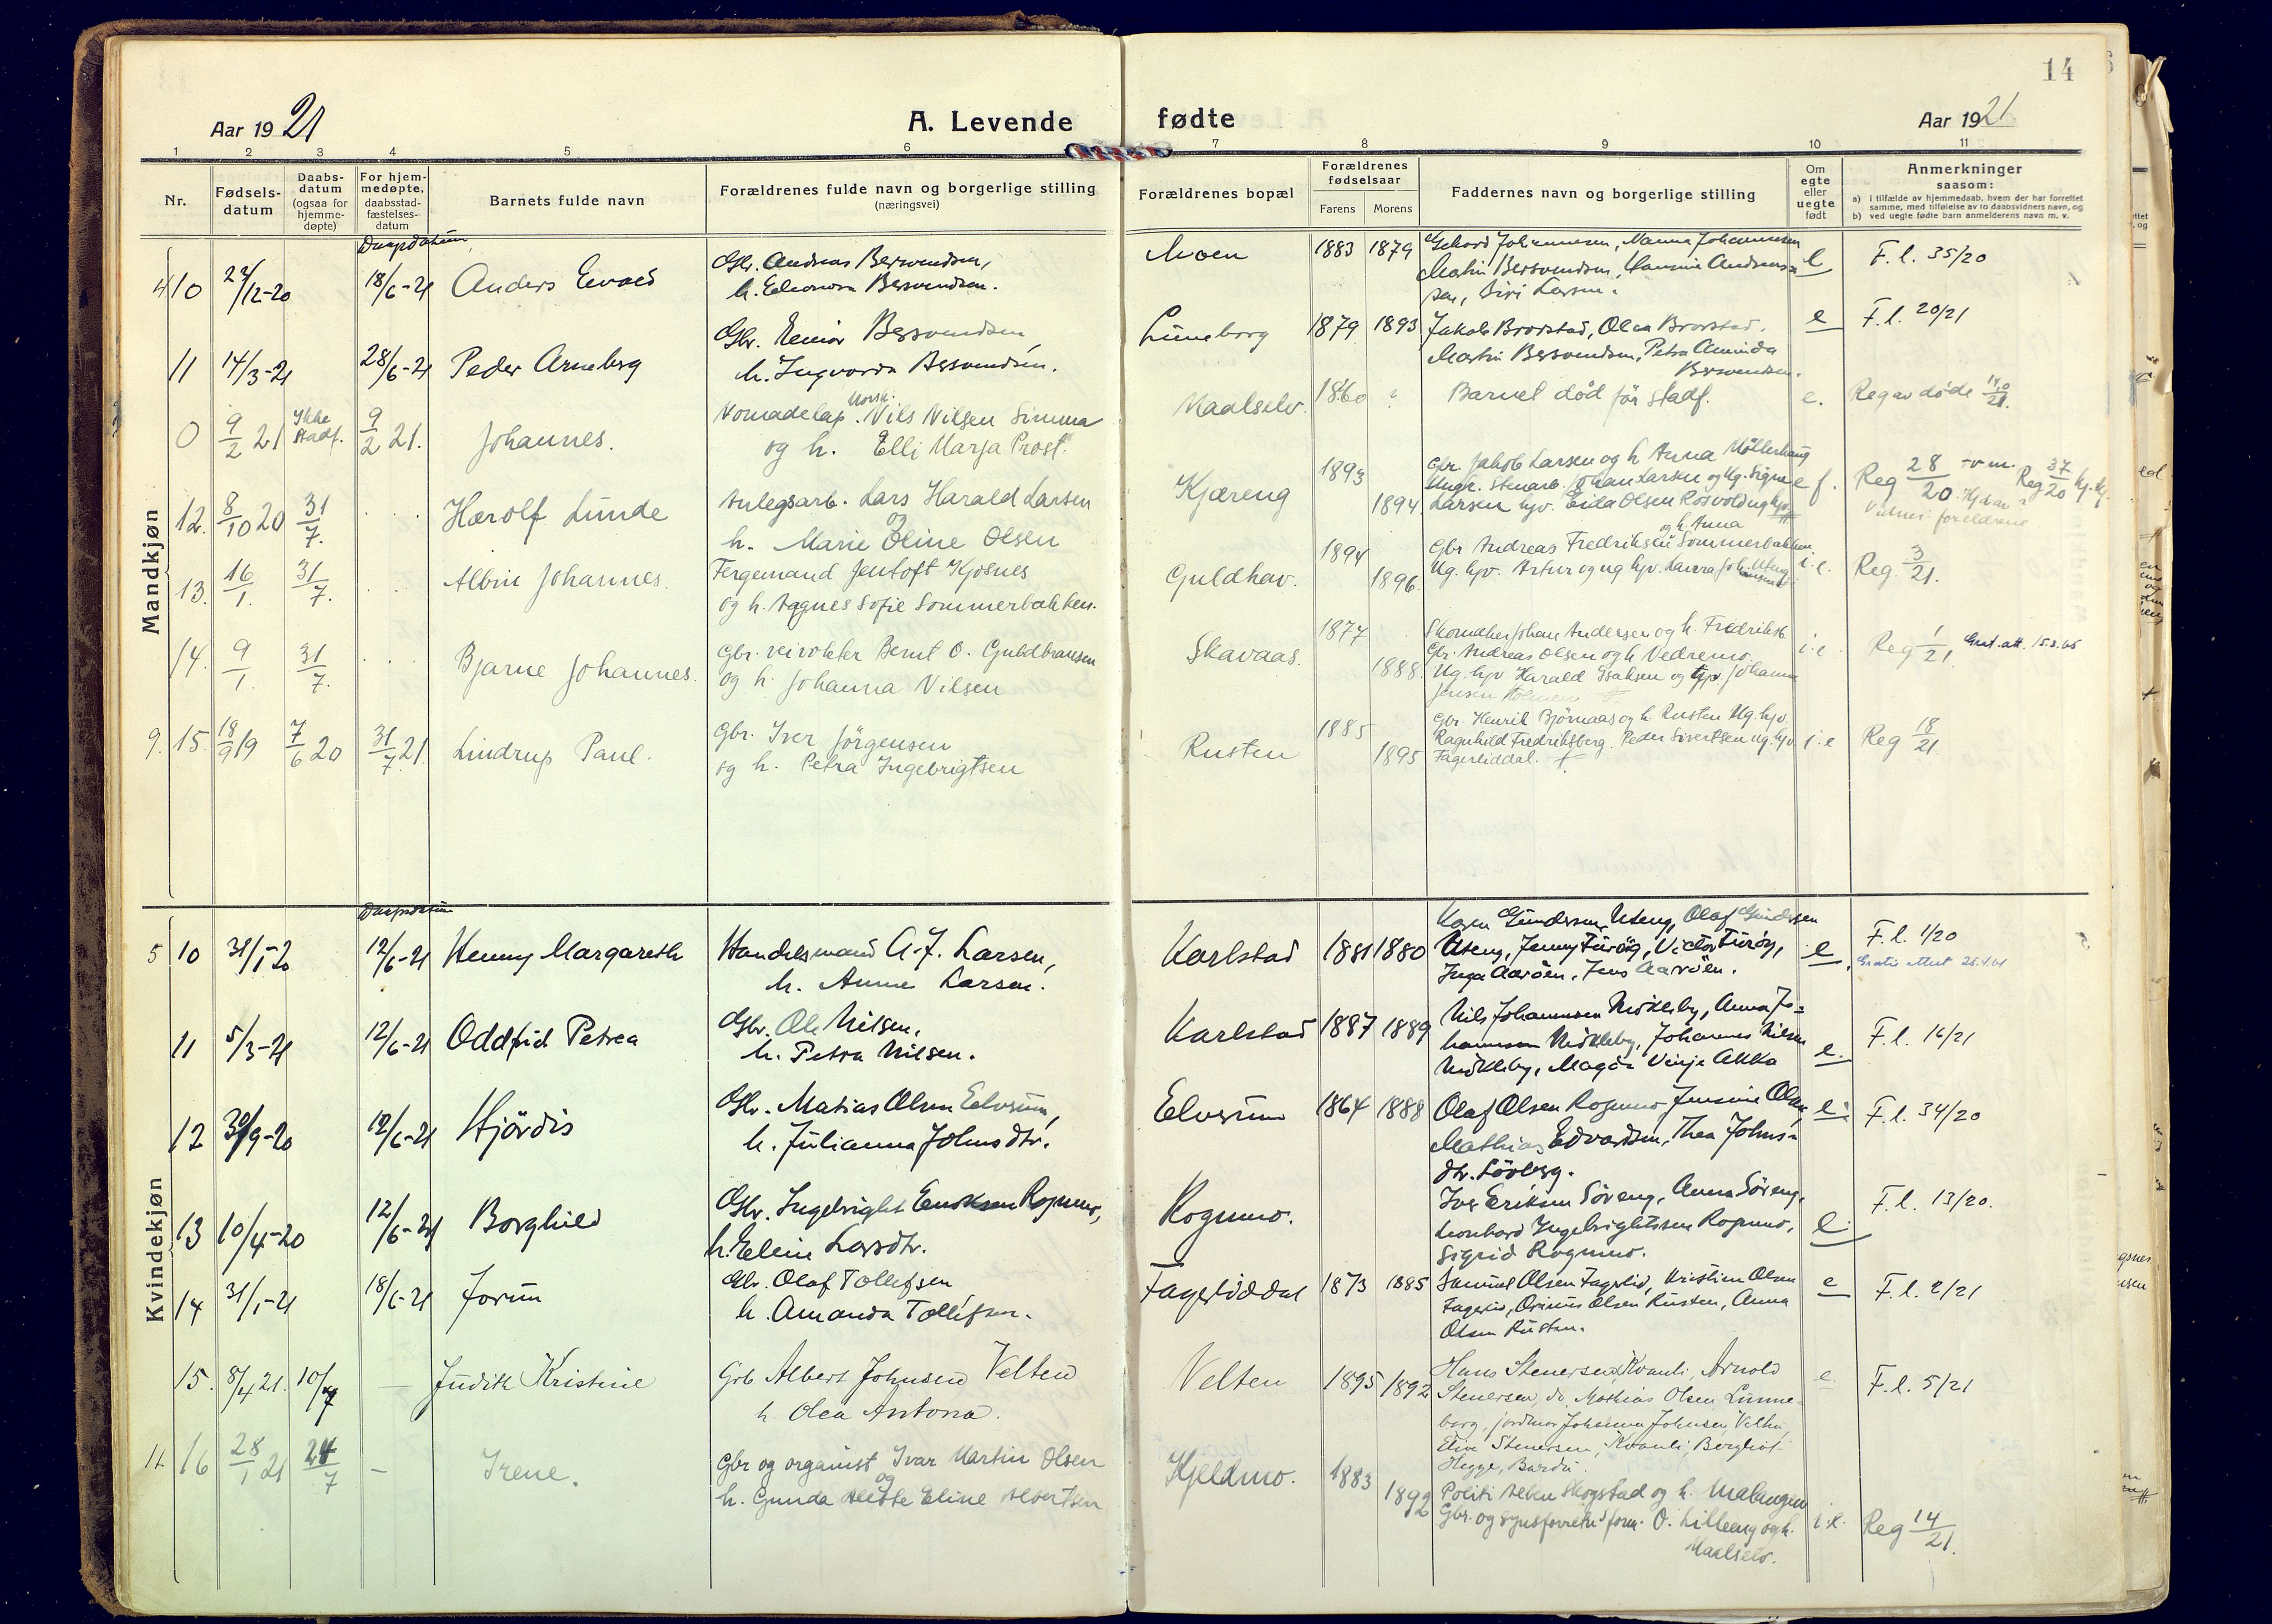 14
Aar 1921
A. Levende fødte
Aar 1921.
1 2 3 4 5 6 7 8 9 10 11
Nr.
Fødsels-
datum
Daabs-
datum
(ogsaa for
hjemme-
døpte)
For hjem-
medøpte,
daabsstad-
fæstelses-
datum
Barnets fulde navn
Forældrenes fulde navn og borgerlige stilling
(næringsvei)
Forældrenes bopæl
Forældrenes
fødselsaar
Farens Morens
Faddernes navn og borgerlige stilling
Om
egte
eller
uegte
født
Anmerkninger
saasom:
a) i tilfælde av hjemmedaab, hvem der har forrettet
samme, med tilføielse av to daabsvidners navn, og
b) ved uegte fødte barn anmelderens navn m. v.
Mandkjøn
Daapsdatum
10 18/6-21 Anders
Gbr. Andreas Bersvendsen,
h. Eleonora Bersvendsen.
Moen 1883 1879
Johannesen, Nanna Johannesen
Martin Bersvendsen,
Siri Larsen.
e F. l. 35/20
11 14/3-21 28/6-21 Peder Arneberg
Gbr. Bersvendsen,
h. Ingvarda Bersvendsen.
Luneborg 1879 1893
Jakob Brorstad, Olea Brorstad.
Martin Bersvendsen, Petra Aminda
Bersvendsen.
e F. l. 20/21
0 9/2 21 Ikke stadf. 9/2 21. Johannes.
Nomadelap. Norsk. Nils Nilsen Simma
og h. Elli Marja Prost.
Maalselv. 1860 ?
Barnet død før stadf.
e. Reg av døde 21.
12. 8/10 20 31/7. Hærolf Lunde
Anlegsarb. Lars Harald Larsen
og
h. Marie Oline Olsen
Kjæreng 1893 1894
Gbr. Jakob Larsen og h. Anna Møllerhaug
Johan Larsen og Ug. Signe
Larsen hjv. Eida Olsen Rosvold ug hjv.
e f. Reg 28/20 Reg 37/20
13. 16/1. 31/7. Albin Johannes.
Fergemand Jentoft Kjosnes
og h. Aagnes Sofie Sommerbakken.
Guldhav. 1894 1896.
og h. Anna
Gbr Andreas Fredriksen Sommerbakken.
Ug. hjv. Artur og ug hjv. Laura
i. e. Reg. 3/21.
14. 9/1. 31/7. Bjarne Johannes.
Gbr. veivokter Bernt O. Guldbransen
og h. Johanna Nilsen
Skavaas. 1877 1888.
Skomaker Johan Andersen og h. Fredriksb.
Gbr. Andreas Olsen og h Vedremo.
Ug. hjv. Harald Isaksen og hjv. Johanna
Jensen Holmen
i. e. Reg 1/21. Grat. att. 15.3.65
9. 15. 18/9 19 7/6 20 31/7 21. Lindrup Paul.
Gbr. Iver Jörgensen
og h. Petra Ingebrigtsen
Rusten 1885 1895
Gbr. Henrik Björnaas og h. Rusten Ug. hjv.
Ragnhild Fredriksberg. Peder Sivertsen ug. hjv.
Fagerliddal.
i. e Reg 18/21.
Kvindekjøn
Daapsdatum
5 10 31/1-20 12/6-21 Henny Margareth
Handelsmand A. J. Larsen,
h. Anne Larsen.
Karlstad 1881 1880
Karen Gundersen Uteng, Olaf Gundersen
Uteng, Jenny Furöy, Victor Furöy,
Inga Aaröen, Jens Aaröen.
e. F. l. 1/20
11 5/3-21 12/6-21 Oddfrid Petrea
Gbr. Ole Nilsen,
h. Petra Nilsen.
Karlstad 1887 1889
Nils Johannesen Mökleby, Anna Jo-
hannesen Mökleby, Johannes Nilsen
Mökleby, Magda Vinje Akka
e. F. l. 16/21
12 30/9-20 12/6-21 Hjördis
Gbr. Matias Olsen Elverum,
h. Julianna Johnsdtr.
Elverum 1864 1888
Olaf Olsen Rognmo, Jensine Olsen,
Mathias Edvardsen, Thea Johns-
dtr. Lövberg.
e. F. l. 34/20
13 10/4-20 12/6-21 Borghild
Gbr. Ingebright Rognmo,
h. Eline Larsdtr.
Rognmo.
Iver Eriksen Söreng, Anna Söreng,
Leonhard Ingebrightsen Rognmo,
Sigrid Rognmo.
e F. l. 13/20.
14 31/1-21 18/6-21 Jorun
Gbr. Olaf Tollefsen
h. Amanda Tollefsen.
Fagerliddal 1873 1885
Samuel Olsen Fagerlid, Kristian Olsen
Fagerlid, Olsen Rusten, Anna
Olsen Rusten.
e F. l. 2/21
15. 8/4 21. 10/7 — Judith Kristine
Grb Albert Johnsen Velten
h. Olea Antona.
Velten 1895 1892
Hans Stenersen, Kvanli, Arnold
Stenersen, do, Mathias Olsen Lunne-
borg, jordmor Johanna Johnsen, Velten,
Stenersen, Kvanli, Bergliot
Hegge, Bardu.
e. F. l. 5/21
11. 16 28/1 21 24/7 — Irene.
Gbr og organist Ivar Martin Olsen
og
h. Gunda Eline Albertsen
Kjeldmo. 1883 1892
Politi Skogstad og h. Malangen
Gbr. og O. Lilleeng og h.
Maalselv.
i. e. Reg 14/21.